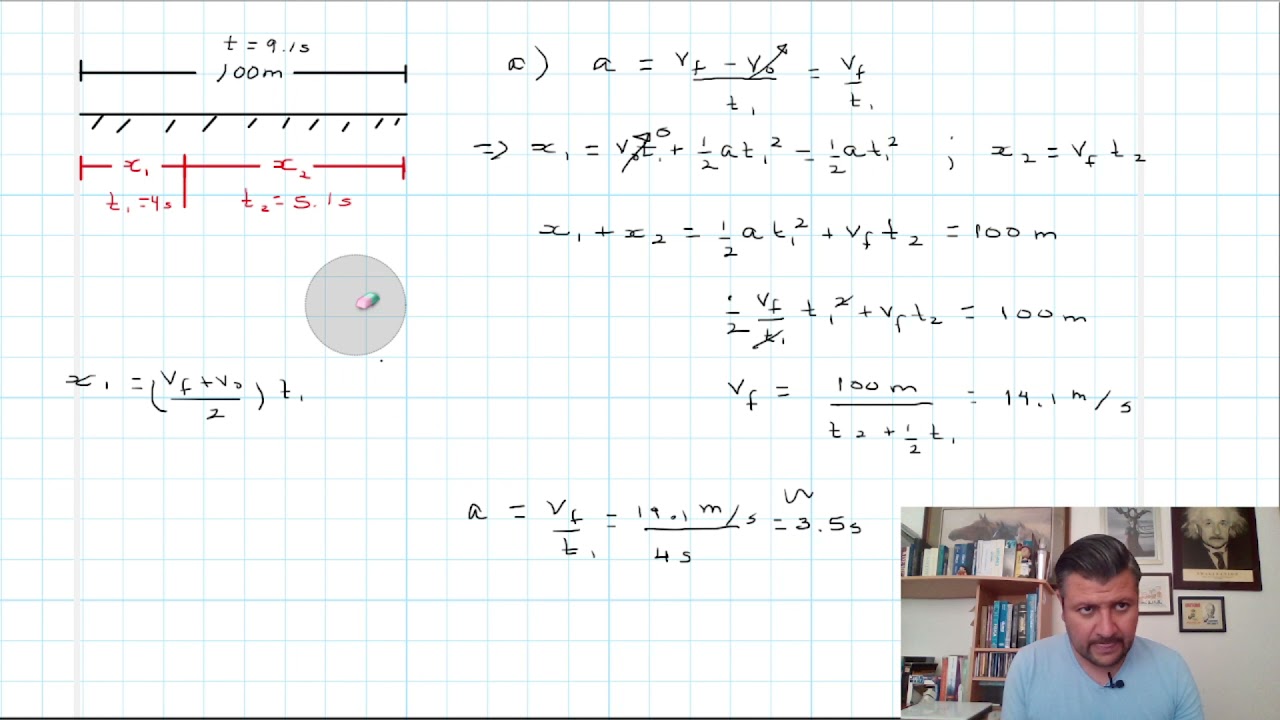 t = 9.1s
100m
x₁ x₂
t₁ = 4s t₂ = 5.1s
a) a = (v_f - v₀)/t₁ = v_f/t₁
=> x₁ = v₀t₁⁰ + 1/2 at₁² = 1/2 at₁² ; x₂ = v_f t₂
x₁ + x₂ = 1/2 a t₁² + v_f t₂ = 100 m
1/2 v_f/t₁ t₁² + v_f t₂ = 100 m
x₁ = ((v_f + v₀)/2) t₁
v_f = 100 m/(t₂ + 1/2 t₁) = 14.1 m/s
a = v_f/t₁ = 14.1 m/s/4s = 3.5s